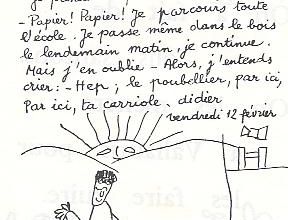 - Papier! Papier! Je parcours toute
l'école. Je passe même dans le bois
le lendemain matin, je continue.
Mais j'en oublie - Alors, j'entends
crier: - Hep; le poubellier, par ici,
Par ici, ta carriole. didier
vendredi 12 février